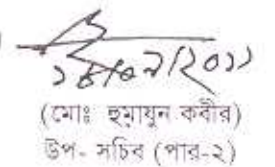 (মোঃ হুমায়ুন কবীর)
উপ- সচিব (পার-২)